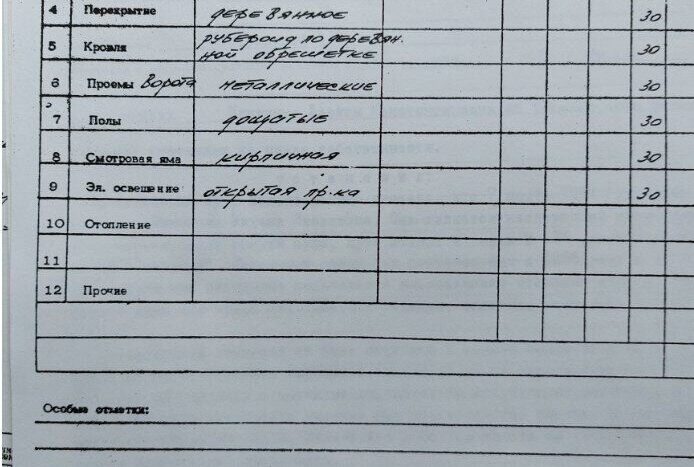 4 Перекрытие деревянное 30
рубероид по деревян.
5 Кровля ной обрешетке 30
6 Проемы Ворота металлические 30
7 Полы дощатые 30
8 Смотровая яма кирпичная 30
9 Эл. освещение открытая пр-ка 30
10 Отопление
11
12 Прочие
Особые отметки: